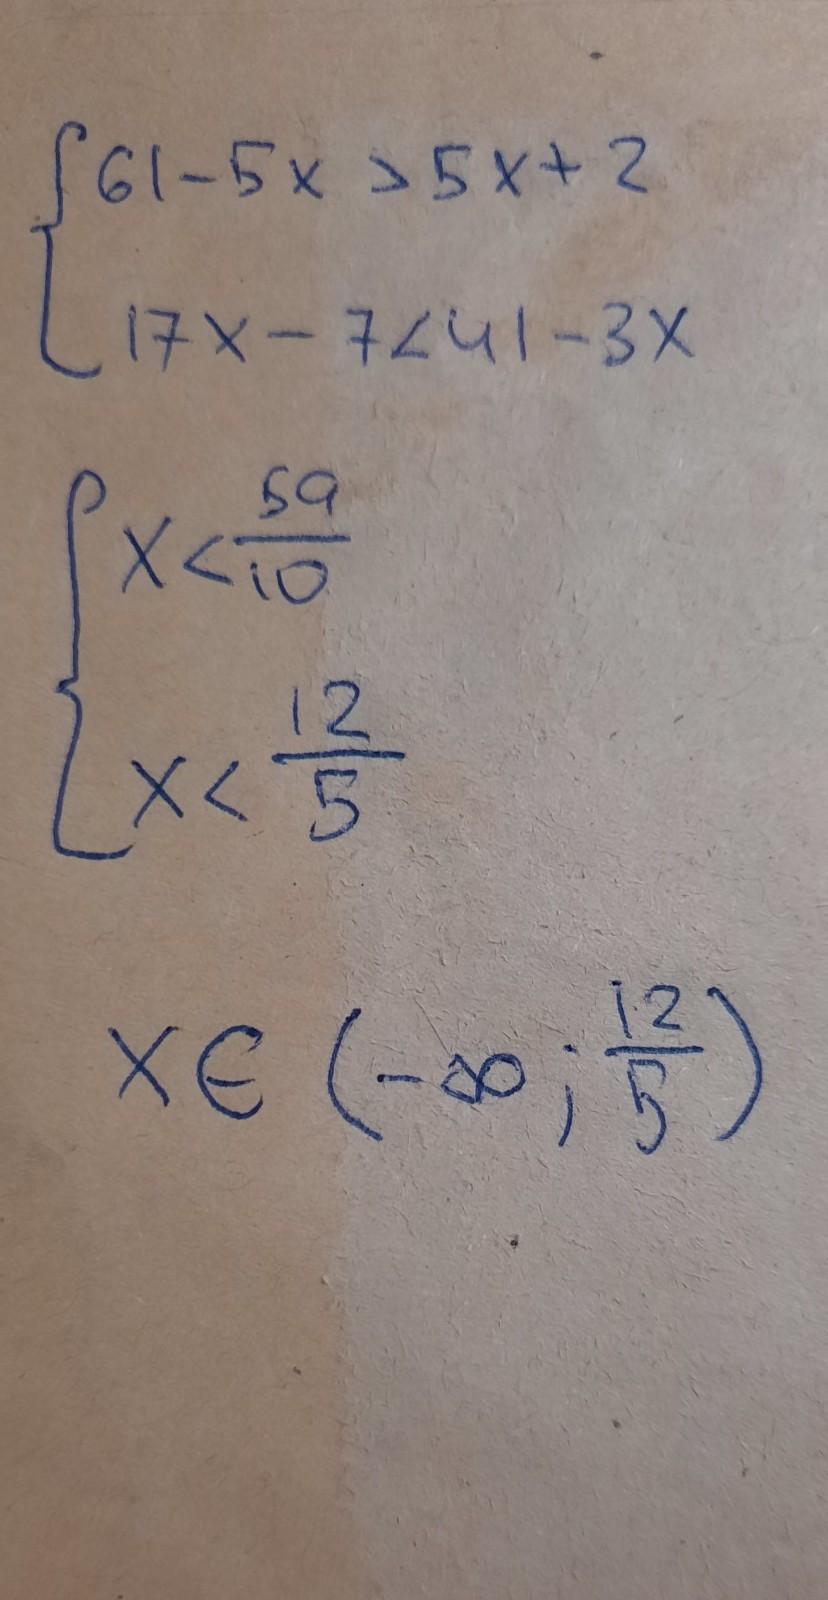 { 61-5x > 5x+2
17x-7<41-3x
{ x < 59/10
x < 12/5
x ∈ (-∞; 12/5)